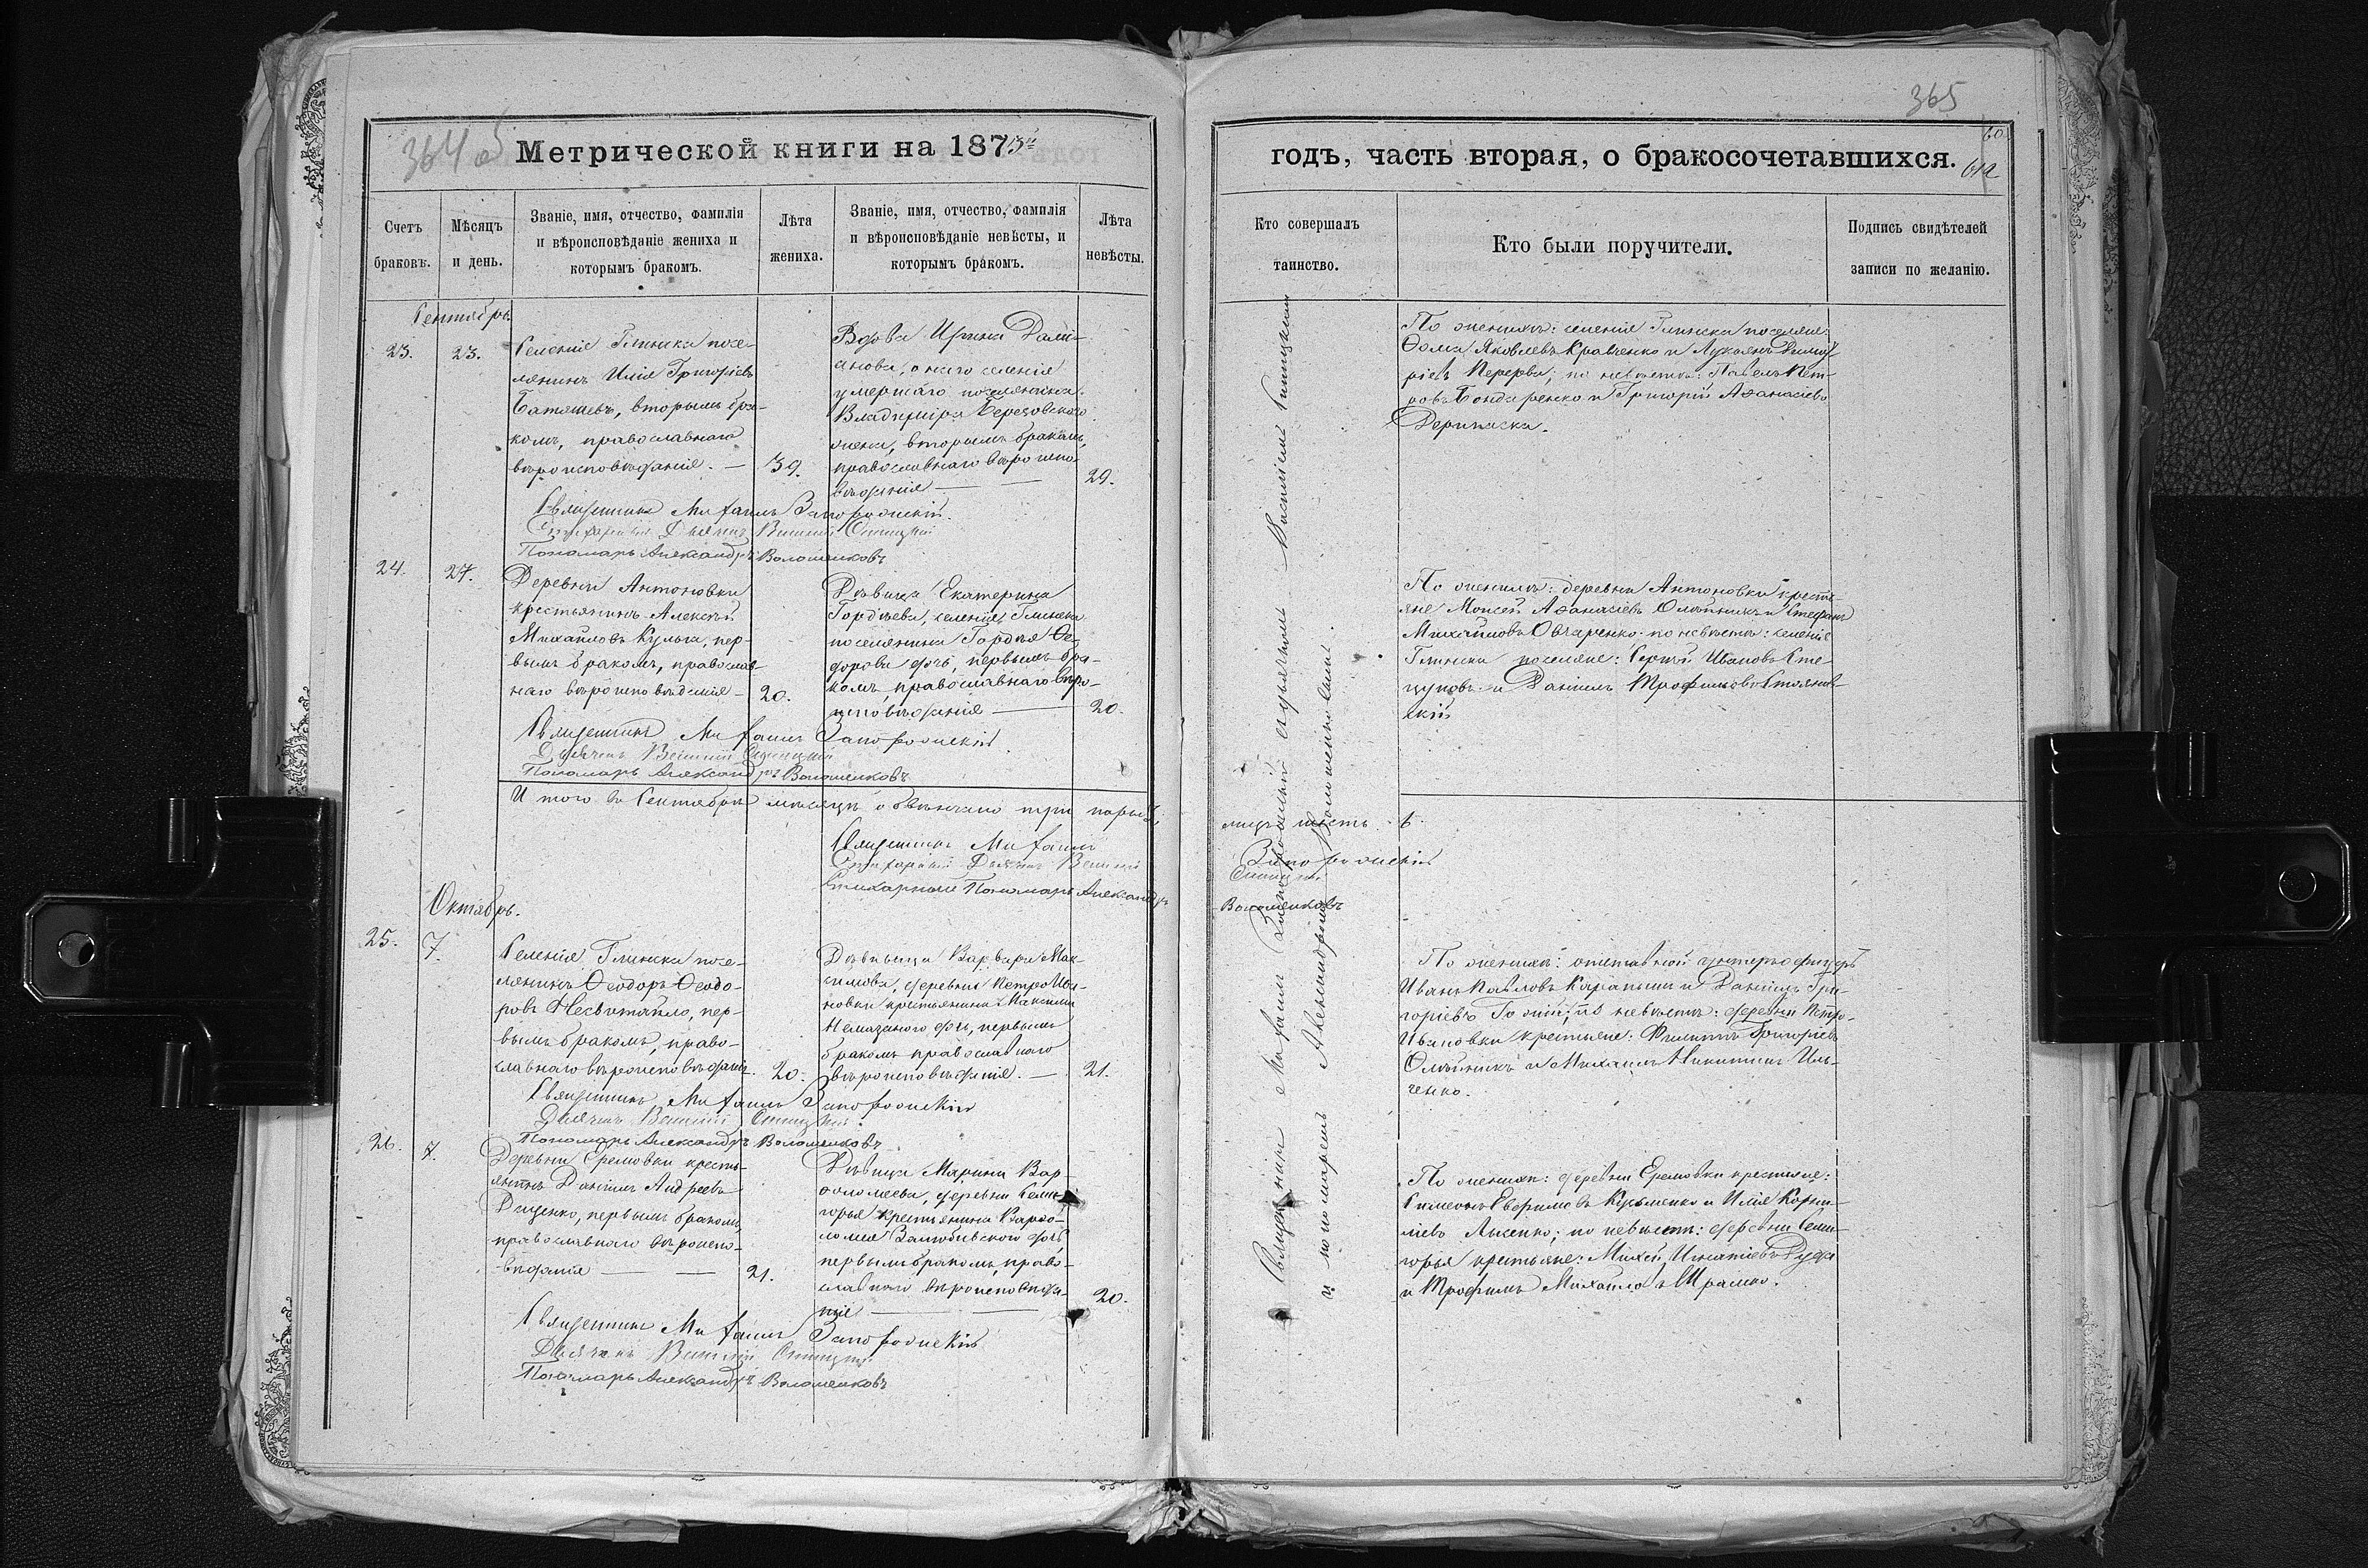 364 об
Метрической книги на 1873й
Счетъ браковъ.
Мѣсяцъ и день.
Званіе, имя, отчество, фамилія и вѣроисповѣданіе жениха и которымъ бракомъ.
Лѣта жениха.
Званіе, имя, отчество, фамилія и вѣроисповѣданіе невѣсты, и которымъ бракомъ.
Лѣта невѣсты.
Сентябрь.
23.
23.
Селенія Глинска посе-
лянинъ Илія Григоріевъ
вторымъ бра-
комъ, православнаго
вѣроисповѣданія. —
39.
Вдова Ирина Дамі-
анова, онаго селенія
умершаго поселянина
Владиміра Березовскаго
жена, вторымъ бракомъ,
православнаго вѣроиспо-
вѣданія —
29.
Священникъ Михаилъ Запорожскій.
Стихарный Дьячекъ
Пономарь Александръ Волошенковъ
24.
27.
Деревни Антоновки
крестьянинъ Алексѣй
Михайловъ Кулыга, пер-
вымъ бракомъ, православ-
наго вѣроисповѣданія —
20.
Дѣвица Екатерина
Гордѣева, селенія Глинска
поселянина Гордѣя Ѳе-
дорова дочь, первымъ бра-
комъ, православнаго вѣро-
исповѣданія —
20.
Священникъ Михаилъ Запорожскій.
Дьячекъ
Пономарь Александръ Волошенковъ
Итого въ Сентябрѣ мѣсяцѣ обвѣнчано три пары,
Священникъ Михаилъ
Стихарный Дьячекъ
Стихарный Пономарь Александръ
Октябрь.
25.
7.
Селенія Глинска посе-
лянинъ Ѳеодоръ Ѳеодо-
ровъ пер-
вымъ бракомъ, право-
славнаго вѣроисповѣданія.
20.
Дѣвица Варвара Мак-
симова, деревни Петро Ива-
новки крестьянина Максима
дочь, первымъ
бракомъ православнаго
вѣроисповѣданія. —
21.
Священникъ Михаилъ Запорожскій
Дьячекъ
Пономарь Александръ Волошенковъ
26.
7.
Деревни Еремовки кресть-
янинъ Даніилъ Андреевъ
первымъ бракомъ
православнаго вѣроиспо-
вѣданія —
21.
Дѣвица Марина Вар-
ѳоломеева, деревни Семи-
горья крестьянина Варѳо-
ломея дочь
первымъ бракомъ, право-
славнаго вѣроисповѣда-
нія —
20.
Священникъ Михаилъ Запорожскій
Дьячекъ
Пономарь Александръ Волошенковъ
365
годъ, часть вторая, о бракосочетавшихся.
Кто совершалъ таинство.
Кто были поручители.
Подпись свидѣтелей записи по желанію.
Священникъ Михаилъ Запорожскій
и пономаремъ Александромъ Волошенковымъ.
По женихѣ: селенія Глинска поселяне:
Ѳома Яковлевъ Кравченко и Лукьянъ Димит-
ріевъ Перерва; по невѣстѣ: Павелъ Пет-
ровъ Бондаренко и Григорій Аѳанасіевъ
Дерипаска.
По женихѣ: деревни Антоновки кресть-
яне Моисей Аѳанасіевъ Олѣйникъ и Стефанъ
Михайловъ Овчаренко; по невѣстѣ: селенія
Глинска поселяне: Сергѣй Ивановъ
и Даніилъ Трофимовъ
лицъ шесть 6.
Запорожскій
Волошенковъ
По женихѣ: отставной унтеръ офицеръ
Иванъ Павловъ и Даніилъ Гри-
горіевъ по невѣстѣ: деревни Петро-
Ивановки крестьяне: Филиппъ Григоріевъ
Олѣйникъ и Михаилъ Никитинъ Иль-
ченко.
По женихѣ: деревни Еремовки крестьяне:
Симеонъ Кузьменко и Илія Корни-
ліевъ Лысенко; по невѣстѣ: деревни Семи-
горья крестьяне: Игнатіевъ Дудка
и Трофимъ Михайловъ Шрамко.